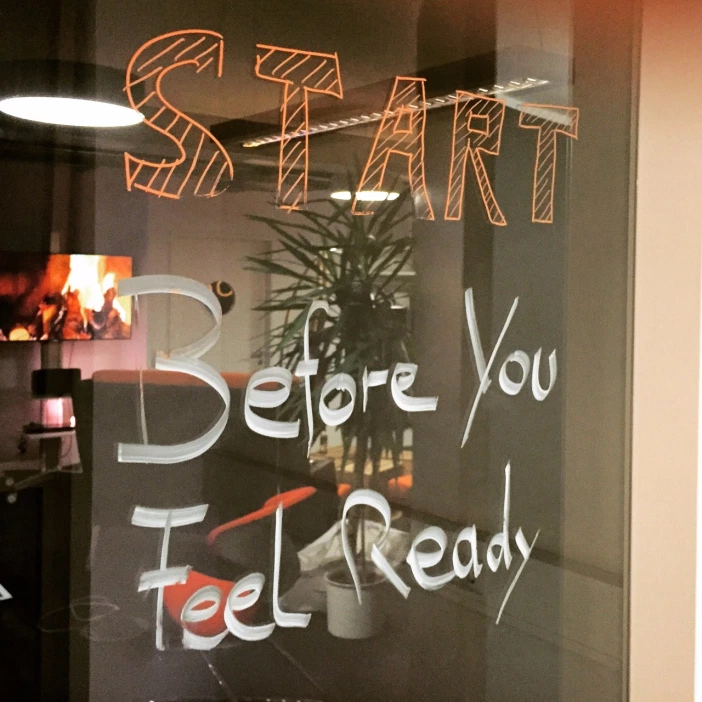 START
Before You
Feel Ready